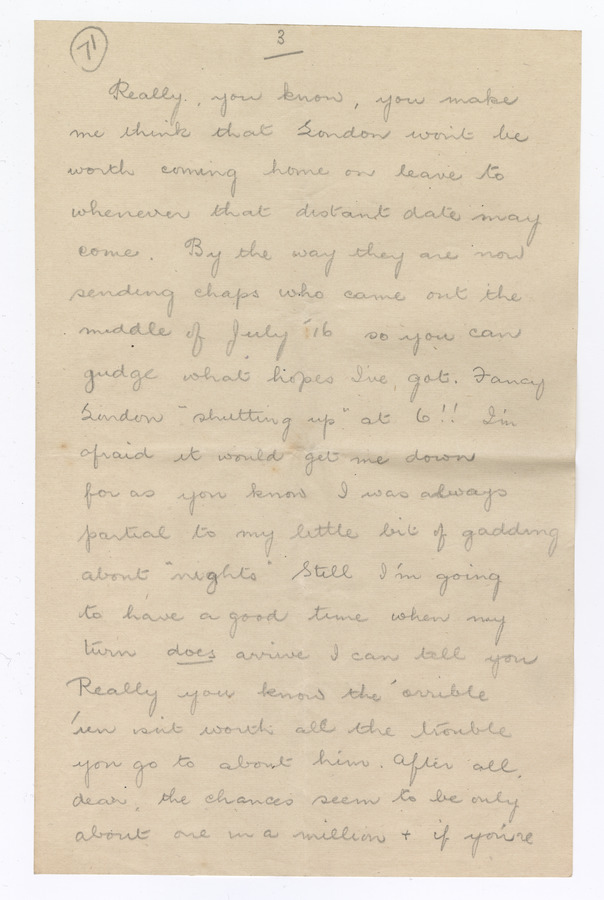 71
3
Really, you know, you make
me think that London won't be
worth coming home on leave to
whenever that distant date may
come. By the way they are now
sending chaps who came out the
middle of July '16 so you can
gudge what hopes I've got. Fancy
London "shutting up" at 6!! I'm
afraid it would get me down
for as you know I was always
partial to my little bit of gadding
about "nights" Still I'm going
to have a good time when my
turn does arrive I can tell you
Really you know the 'orrible
'un isn't worth all the trouble
you go to about him. After all,
dear, the chances seem to be only
about one in a million + if you're